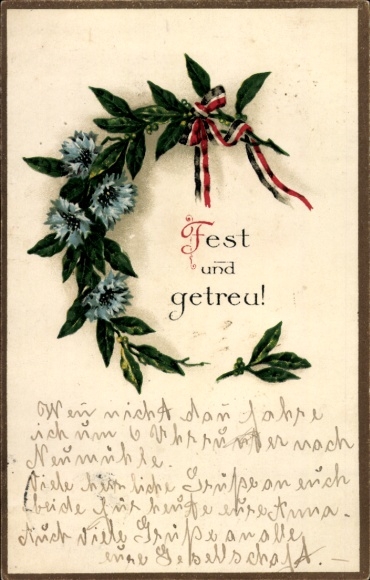 Fest
und
getreu!
Wen̄ nicht dan̄ fahre
ich um 6 Uhr runter nach
Neumühle.
Viele herzliche Grüße an euch
beide für heute eure Anna.-
Auch viele Grüße an alle
eure Gesellschaft. -